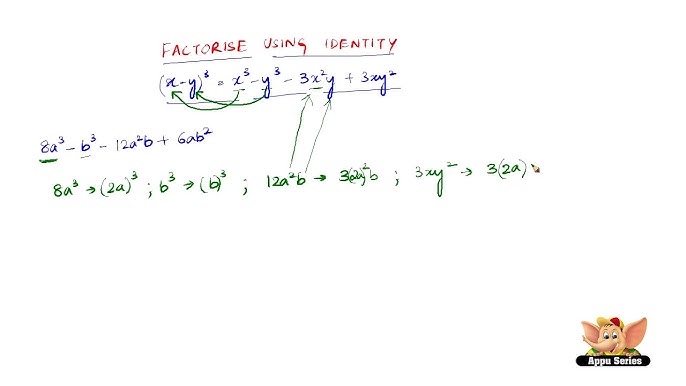 FACTORISE USING IDENTITY
(x-y)³ = x³ - y³ - 3x²y + 3xy²
8a³ - b³ - 12a²b + 6ab²
8a³ → (2a)³ ; b³ → (b)³ ; 12a²b → 3(2a)²b ; 3xy² → 3(2a)
Appu Series